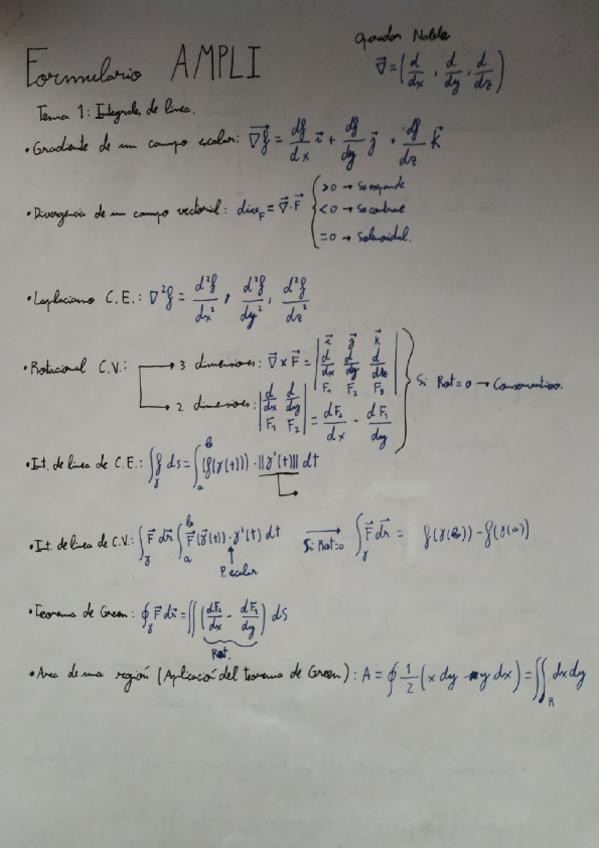 Operador Nabla
Formulario AMPLI
∇⃗ = (d/dx, d/dy, d/dz)
Tema 1: Integrales de línea.
• Gradiente de un campo escalar: ∇⃗f = df/dx i⃗ + df/dy j⃗ + df/dz k⃗
• Divergencia de un campo vectorial: div_F = ∇⃗·F⃗ { >0 → Se expande
<0 → Se contrae
=0 → Solenoidal.
• Laplaciano C.E.: ∇²f = d²f/dx², d²f/dy², d²f/dz²
• Rotacional C.V.: → 3 dimensiones: ∇⃗ x F⃗ = | i⃗ j⃗ k⃗ |
| d/dx d/dy d/dz |
| F₁ F₂ F₃ |
} Si Rot=0 → Conservativo.
→ 2 dimensiones: | d/dx d/dy |
| F₁ F₂ | = dF₂/dx - dF₁/dy
• Int. de línea de C.E.: ∫_γ f ds = ∫_a^b (f(γ(t))) · ||γ'(t)|| dt
• Int. de línea de C.V.: ∫_γ F⃗ dr⃗ ∫_a^b F⃗(γ⃗(t)) · γ'(t) dt → Si Rot=0 ∫_γ F⃗ dr⃗ = f(γ(b)) - f(γ(a))
P. escalar
• Teorema de Green: ∮_γ F⃗ dr⃗ = ∬ (dF₂/dx - dF₁/dy) dS
Rot.
• Area de una región (Aplicación del teorema de Green): A = ∮ 1/2 (x dy - y dx) = ∬_R dx dy